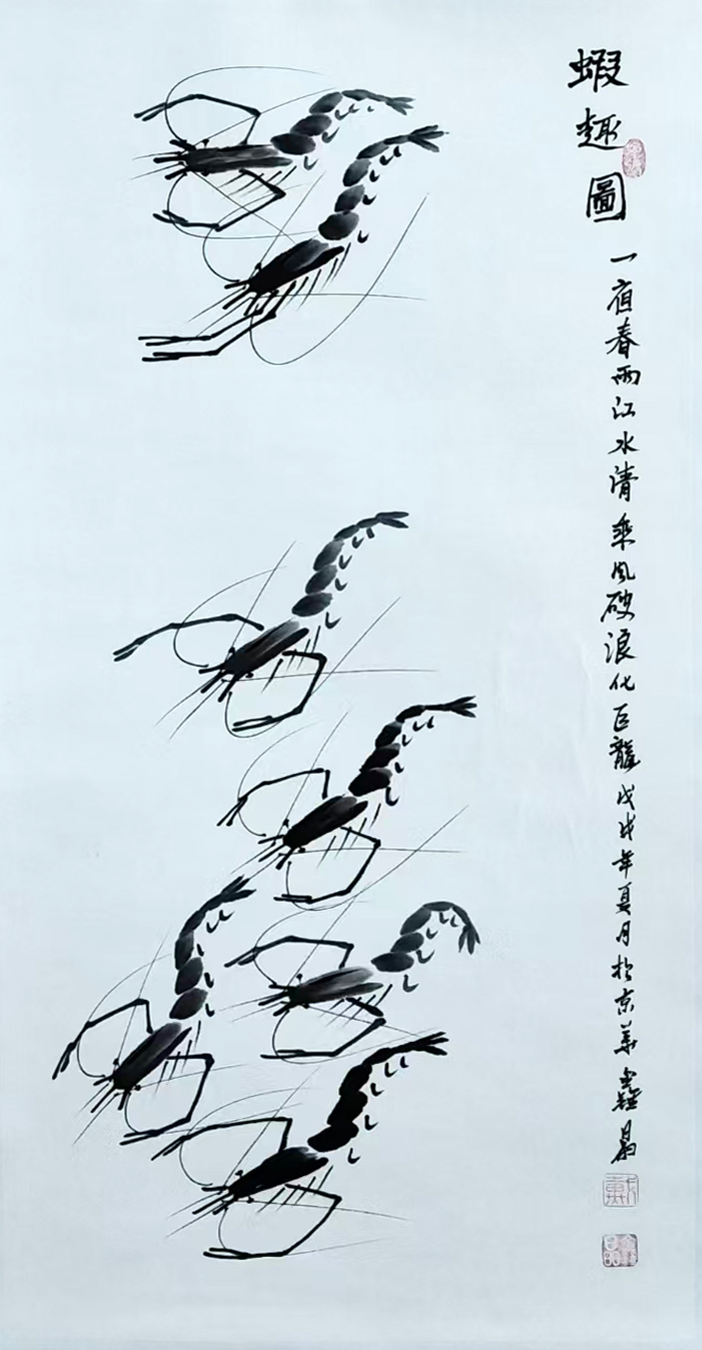 蝦趣圖
一宿春雨江水清乘風破浪化巨龍戊戌年夏月於京華鑫晶
戴